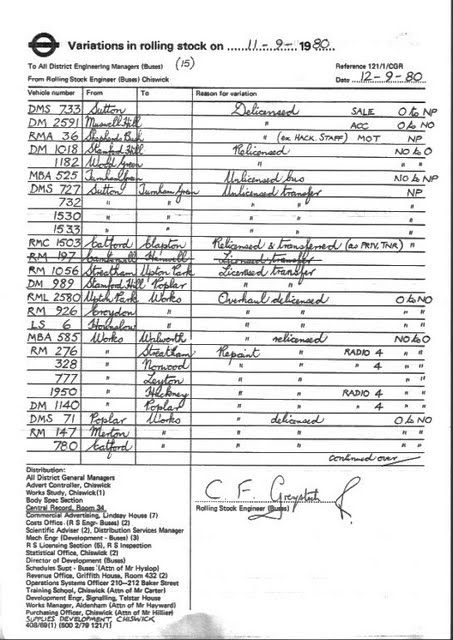 Variations in rolling stock on 11-9-1980
To All District Engineering Managers (Buses) (15) Reference 121/1/CGR
From Rolling Stock Engineer (Buses) Chiswick Date 12-9-80
Vehicle number From To Reason for variation
DMS 733 Sutton Delicensed SALE O to NP
DM 2591 Muswell Hill " ACC O to NO
RMA 36 Shepherds Bush " (ex HACK. STAFF) MOT NP
DM 1018 Stamford Hill Relicensed NO to O
1182 Wood Green " " "
MBA 525 Turnham Green Unlicensed bus NO to NP
DMS 727 Sutton Turnham Green Unlicensed transfer NP
732 " " " "
1530 " " " "
1533 " " " "
RMC 1503 Catford Clapton Relicensed & transferred (as PRIV. TNR) NO to O
RM 197 Camberwell Hanwell Licensed transfer
RM 1056 Streatham Upton Park Licensed transfer
DM 989 Stamford Hill Poplar " "
RML 2580 Upton Park Works Overhaul delicensed O to NO
RM 926 Croydon " " " " "
LS 6 Hounslow " " " " "
MBA 585 Works Walworth " relicensed NO to O
RM 276 " Streatham Repaint " RADIO 4 " "
328 " Norwood " " " 4 " "
777 " Leyton " " " "
1950 " Hackney " " RADIO 4 " "
DM 1140 " Poplar " " " 4 " "
DMS 71 Poplar Works " delicensed O to NO
RM 147 Merton " " " " "
780 Catford " " " " "
continued over
Distribution:
All District General Managers
Advert Controller, Chiswick
Works Study, Chiswick(1)
Body Spec Section
Central Record, Room 34
Commercial Advertising, Lindsay House (7)
Costs Office (R S Engr- Buses) (2)
Scientific Adviser (2), Distribution Services Manager
Mech Engr (Development - Buses) (3)
R S Licensing Section (5), R S Inspection
Statistical Office, Chiswick (2)
Director of Development (Buses)
Schedules Supt - Buses (Attn of Mr Hyslop)
Revenue Office, Griffith House, Room 432 (2)
Operations Systems Officer 210–212 Baker Street
Training School, Chiswick (Attn of Mr Carter)
Development Engr, Signalling, Telstar House
Works Manager, Aldenham (Attn of Mr Hayward)
Purchasing Officer, Chiswick (Attn of Mr Hillier)
SUPPLIES DEVELOPMENT, CHISWICK
408/69(1) (500 2/79 121/1)
C. F.
Rolling Stock Engineer (Buses)